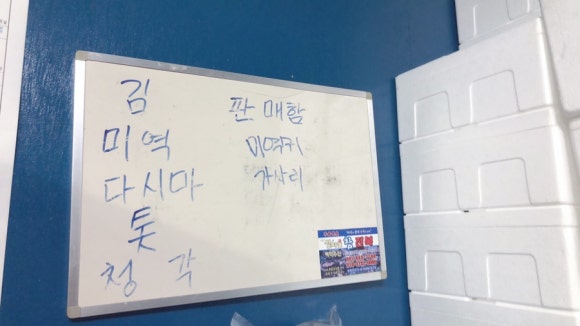 김
미역
다시마
톳
청 각
판매함
미역귀
가사리
전복